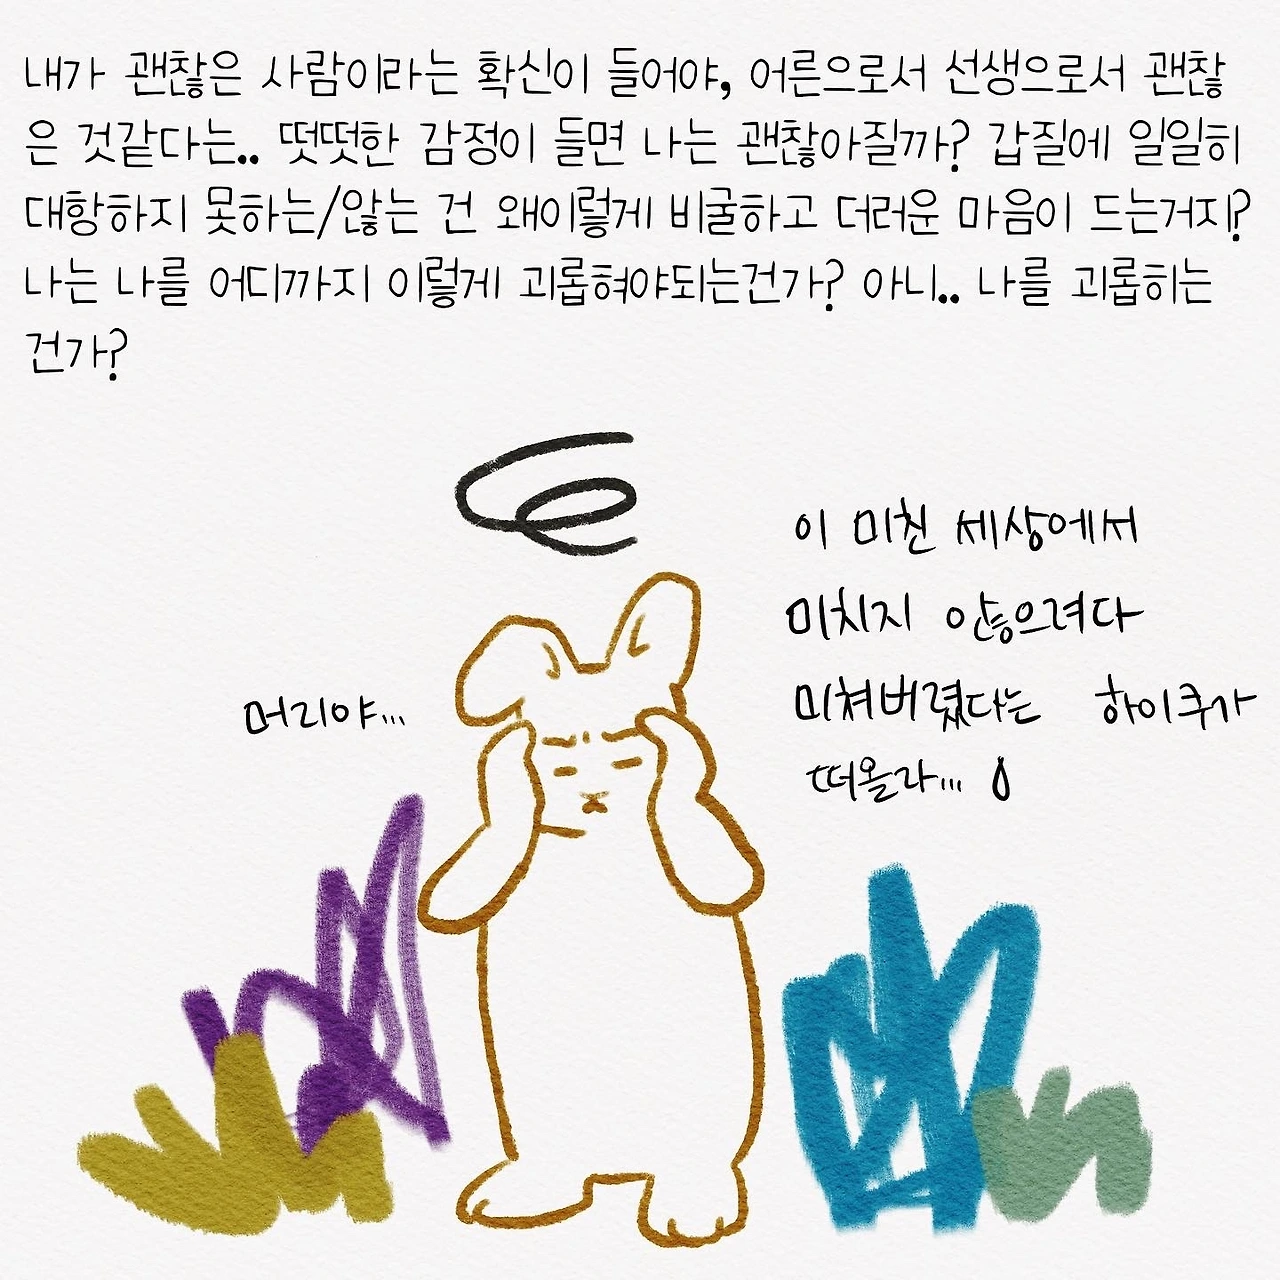 내가 괜찮은 사람이라는 확신이 들어야, 어른으로서 선생으로서 괜찮
은 것같다는.. 떳떳한 감정이 들면 나는 괜찮아질까? 갑질에 일일히
대항하지 못하는/않는 건 왜이렇게 비굴하고 더러운 마음이 드는거지?
나는 나를 어디까지 이렇게 괴롭혀야되는건가? 아니.. 나를 괴롭히는
건가?
이 미친 세상에서
미치지 않으려다
미쳐버렸다는 하이쿠가
떠올라...
머리야...